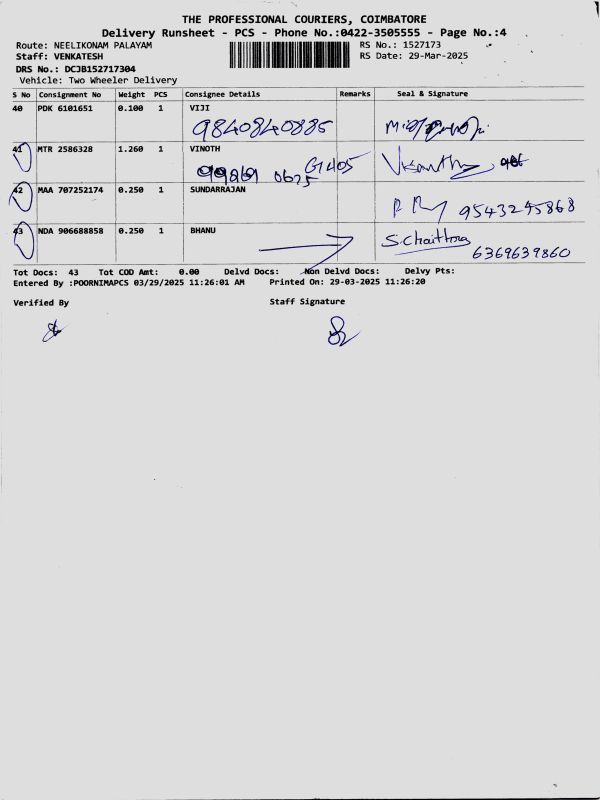 THE PROFESSIONAL COURIERS, COIMBATORE
Delivery Runsheet - PCS - Phone No.:0422-3505555 - Page No.:4
Route: NEELIKONAM PALAYAM
RS No.: 1527173
Staff: VENKATESH
RS Date: 29-Mar-2025
DRS No.: DCJB152717304
Vehicle: Two Wheeler Delivery
S No Consignment No Weight PCS Consignee Details Remarks Seal & Signature
40 PDK 6101651 0.100 1 VIJI
9840840885
41 MTR 2586328 1.260 1 VINOTH
G1405
42 MAA 707252174 0.250 1 SUNDARRAJAN
9543245868
43 NDA 906688858 0.250 1 BHANU
6369639860
Tot Docs: 43 Tot COD Amt: 0.00 Delvd Docs: Non Delvd Docs: Delvy Pts:
Entered By :POORNIMAPCS 03/29/2025 11:26:01 AM Printed On: 29-03-2025 11:26:20
Verified By Staff Signature